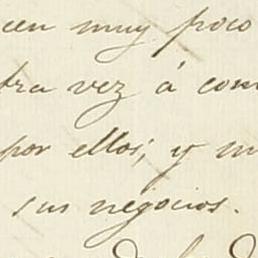 cen muy poco
tra vez á com
por ellos; y m
sus negocios.